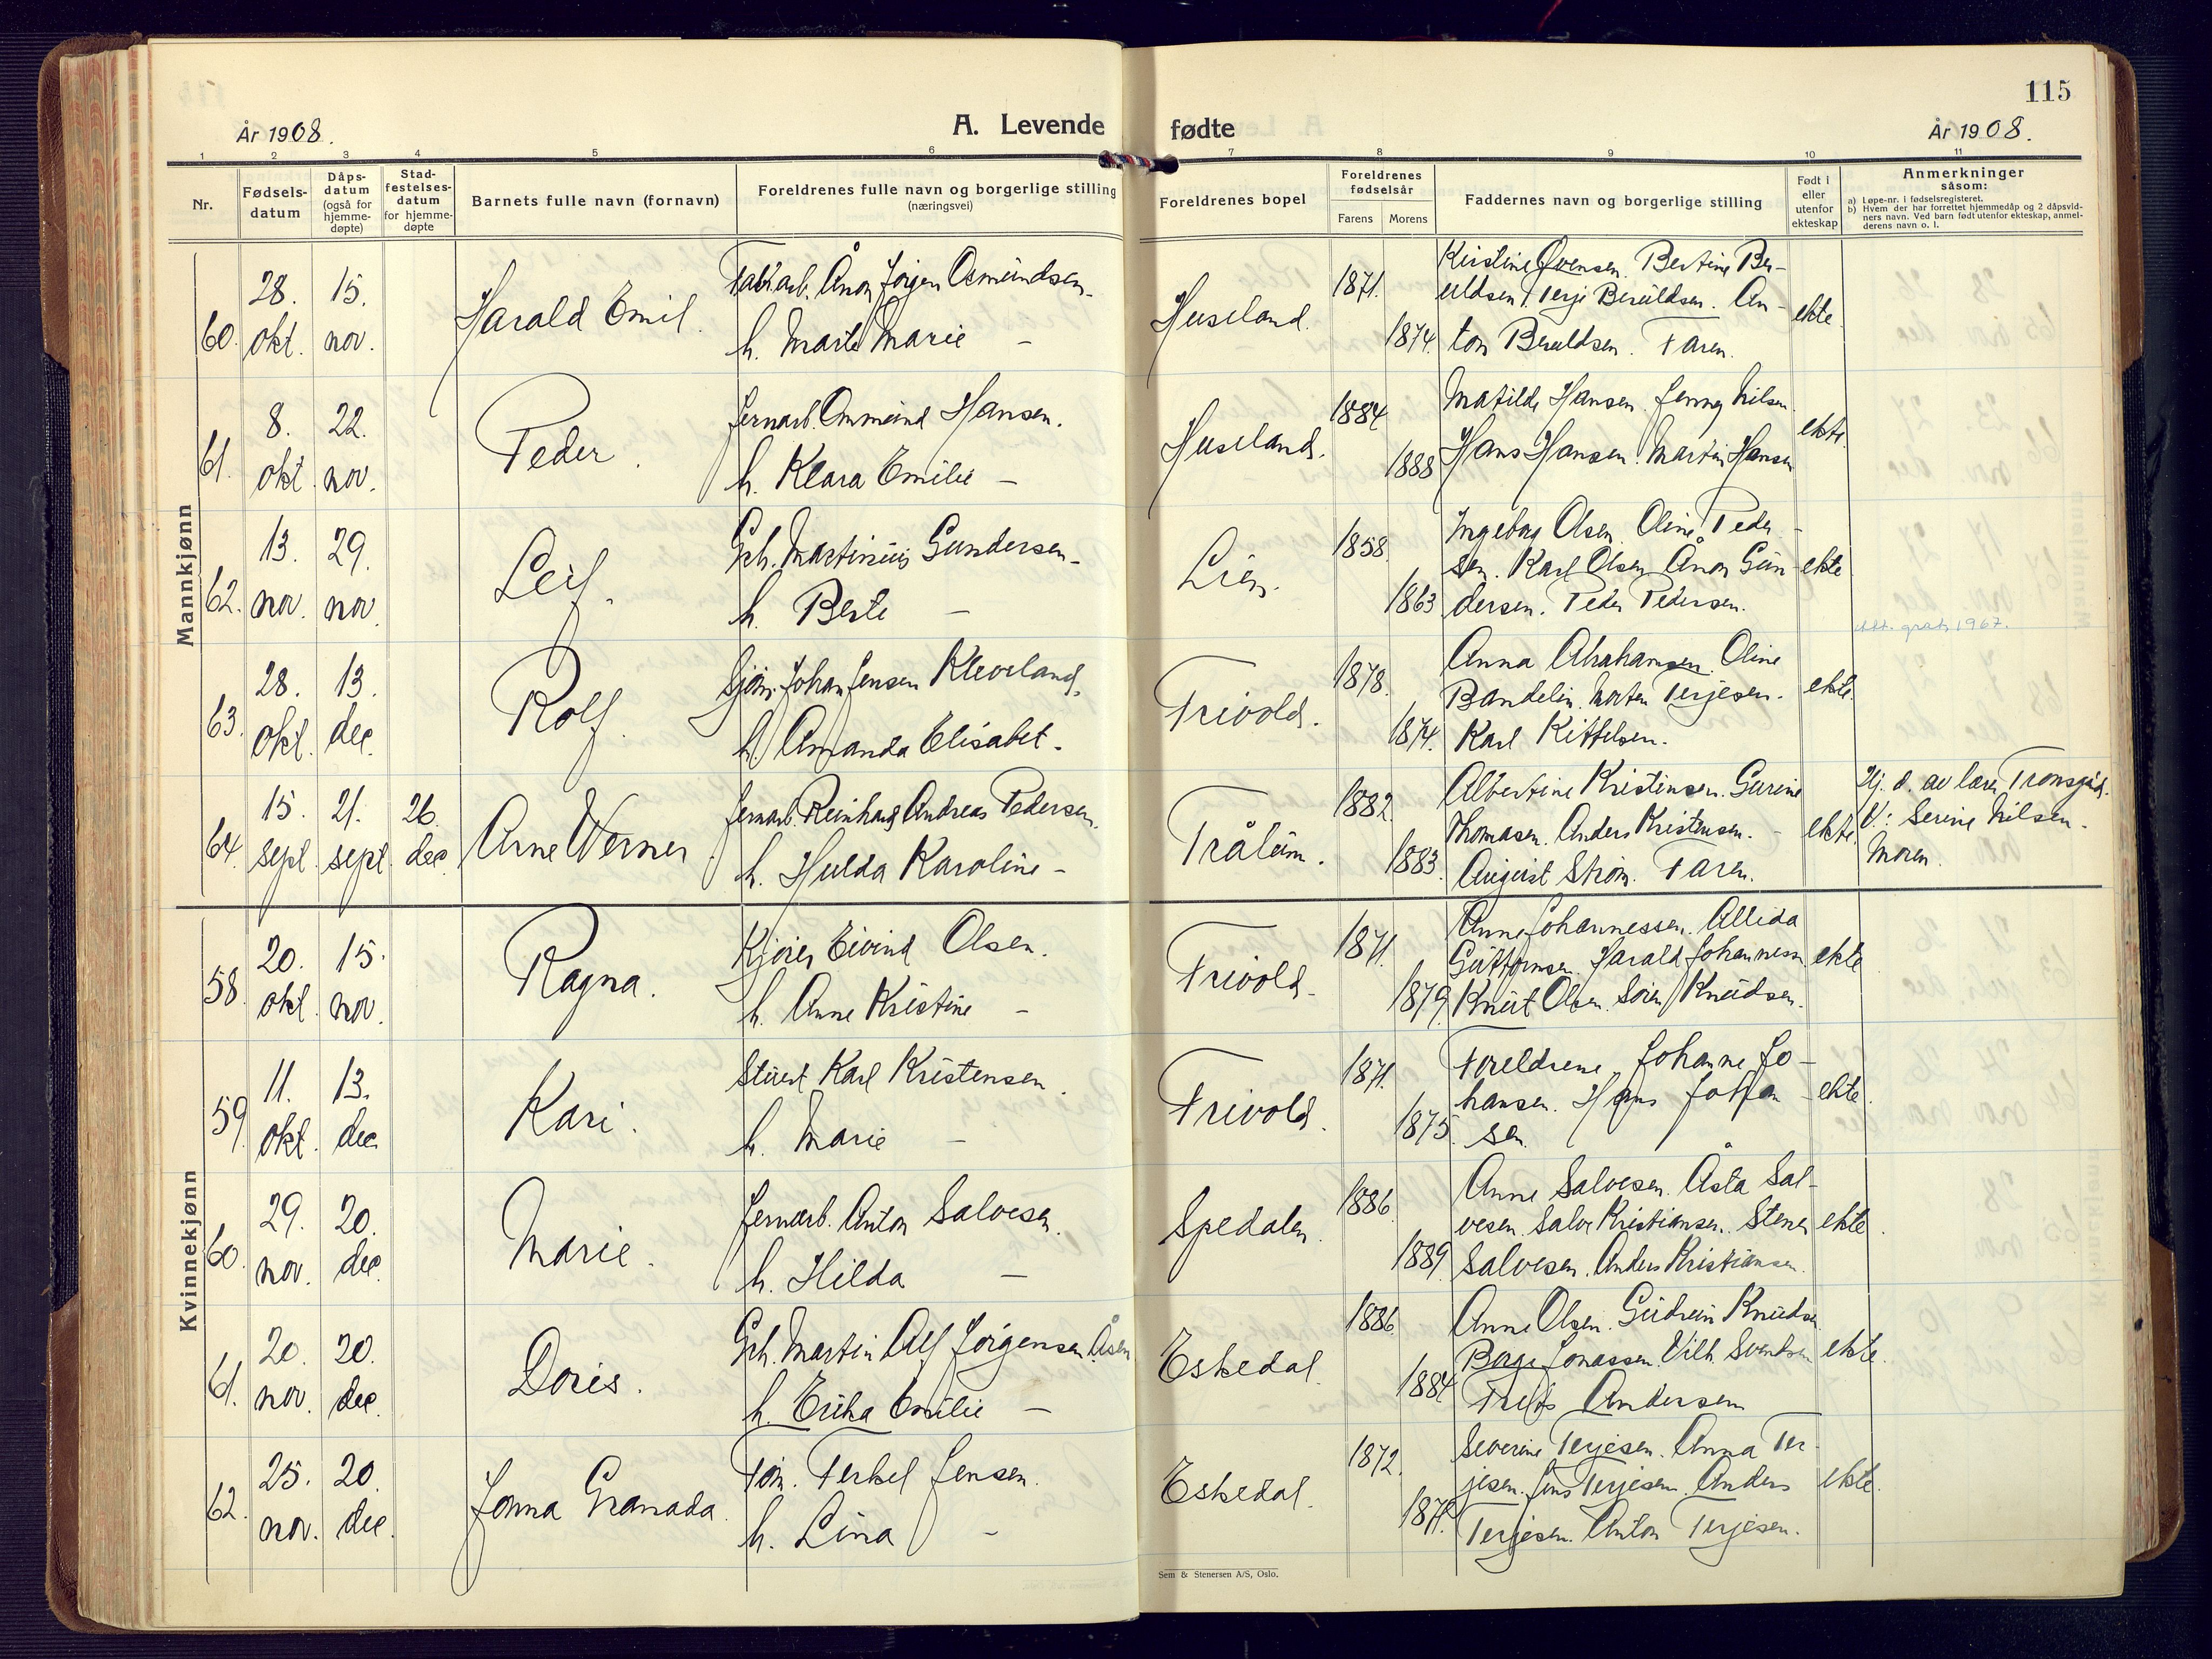 115
År 1908.
A. Levende fødte
År 1908.
1 2 3 4 5 6 7 8 9 10 11
Nr.
Fødsels-
datum
Dåps-
datum
(også for
hjemme-
døpte)
Stad-
festelses-
datum
for hjemme-
døpte
Barnets fulle navn (fornavn)
Foreldrenes fulle navn og borgerlige stilling
(næringsvei)
Foreldrenes bopel
Foreldrenes
fødselsår
Farens Morens
Faddernes navn og borgerlige stilling
Født i
eller
utenfor
ekteskap
Anmerkninger
såsom:
a) Løpe-nr. i fødselsregisteret.
b) Hvem der har forrettet hjemmedåp og 2 dåpsvid-
ners navn. Ved barn født utenfor ekteskap, anmel-
derens navn o. l.
Mannkjønn
60. 28. okt. 15. nov.
Harald Emil.
Fabr.arb. Anon Jörgen Osmundsen.
h. Marte Marie —
Huseland.
1871.
1874.
Kirstine Evensen. Bertine Ber-
uldsen. Terje Beruldsen. An-
ton Beruldsen. Faren.
ekte.
61. 8. okt. 22. nov.
Peder.
Jernarb. Ommund Hansen.
h. Klara Emilie —
Huseland.
1884
1888
Matilde Hansen. Jenny Nilsen.
Hans Hansen. Martin Hansen
ekte.
62. 13. nov. 29. nov.
Leif.
Grh. Martinius Gundersen.
h. Berte —
Lien.
1858
1863
Ingeborg Olsen. Oline Peder-
sen. Karl Olsen. Anon Gun-
dersen. Peder Pedersen.
ekte
1967.
63. 28. okt. 13. dec.
Rolf.
Sjöm. Johan Jensen Kleveland,
h. Amanda Elisabet.
Frivold.
1878.
1874.
Anna Abrahamsen. Oline
Bandelin. Morten Terjesen.
Karl Kittelsen.
ekte.
64. 15. sept. 21. sept. 26. dec.
Arne Werner.
Jernarb. Reinhard Andreas Pedersen.
h. Hulda Karoline —
Trålum.
1882.
1883.
Albertine Kristensen. Gurine
Thomasen. Anders Kristensen.
August Ström. Faren.
ekte.
Hj. d. av lærer Tronsgård.
V.: Serine Nilsen.
Moren.
Kvinnekjønn
58. 20. okt. 15. nov.
Ragna.
Kjörer Eivind Olsen.
h. Anne Kristine —
Frivold.
1871.
1879.
Anne Johannessen. Allida
Guttormsen. Harald Johannessen
Knut Olsen. Sören Knudsen.
ekte
59. 11. okt. 13. dec.
Kari.
Stuert Karl Kristensen.
h. Marie —
Frivold.
1871.
1875.
Foreldrene. Johanne Jo-
hansen. Hans Johan-
sen.
ekte.
60. 29. nov. 20. dec.
Marie.
Jernarb. Anton Salvesen.
h. Hilda —
Spedalen.
1886.
1889
Anne Salvesen. Åsta Sal-
vesen. Salve Kristiansen. Stener
Salvesen. Anders Kristiansen.
ekte.
61. 20. nov. 20. dec.
Doris.
Grh. Martin Alf Jörgensen Åsen
h. Erika Emilie —
Eskedal.
1886.
1884
Anne Olsen. Gudrun Knudsen.
Borge Jonassen. Vilh. Svendsen
Andersen
ekte.
62. 25. nov. 20. dec.
Jonna Granada.
Töm. Terkel Jensen.
h. Lina —
Eskedal.
1872.
Severine Terjesen. Anna Ter-
jesen. Jens Terjesen. Anders
Terjesen. Anton Terjesen.
ekte.
Sem & Stenersen A/S, Oslo.